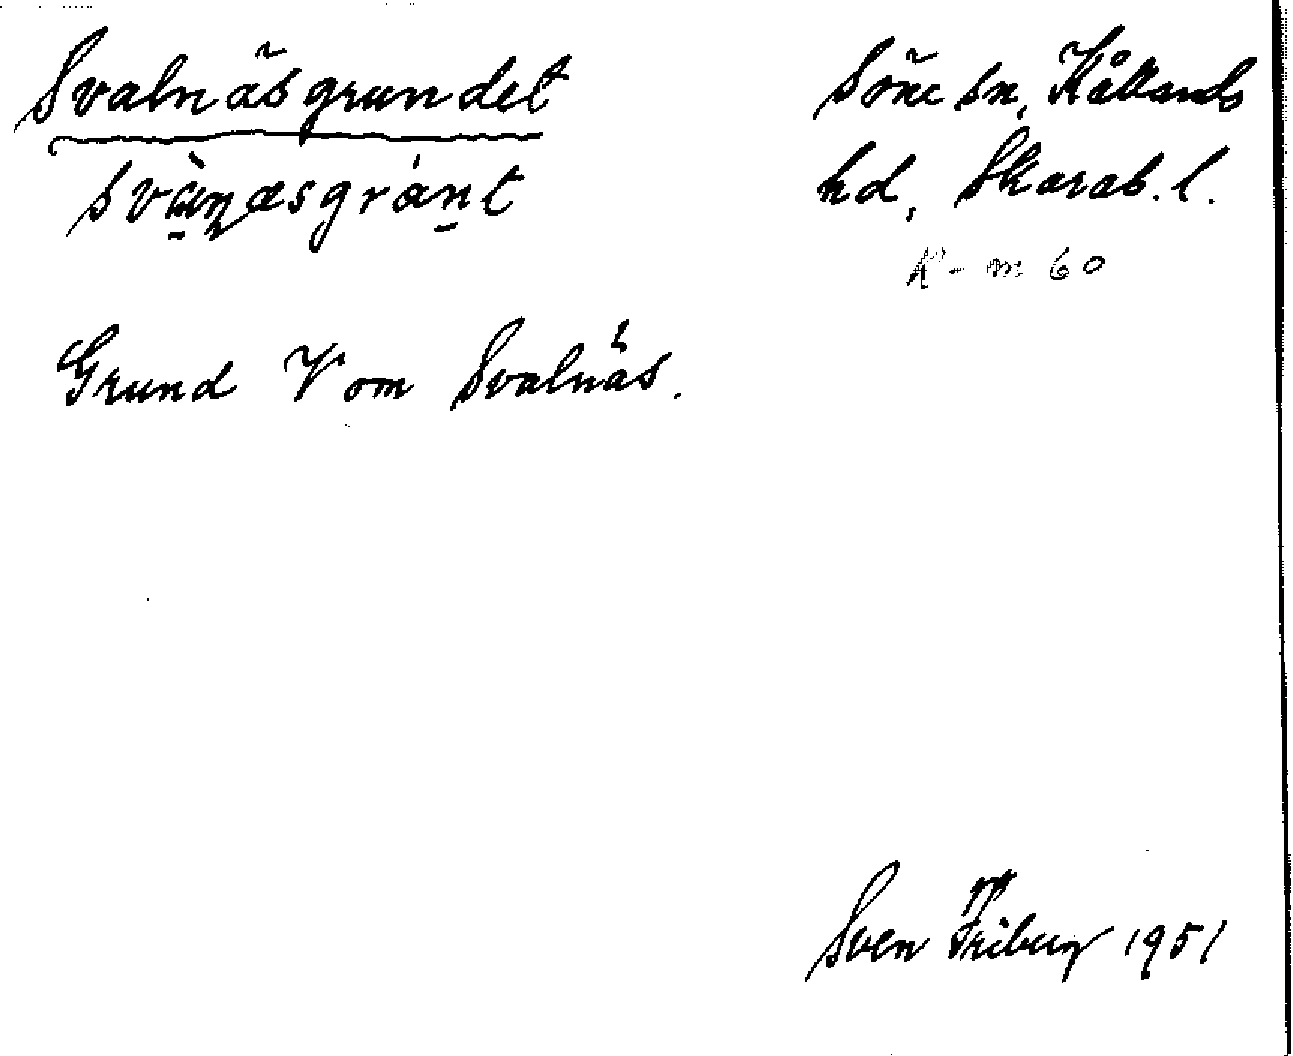 Svalnäsgrundet
Söne sn, Kållands
hd, Skarab. l.
K-m 60
Grund V om Svalnäs.
Sven Friberg 1951